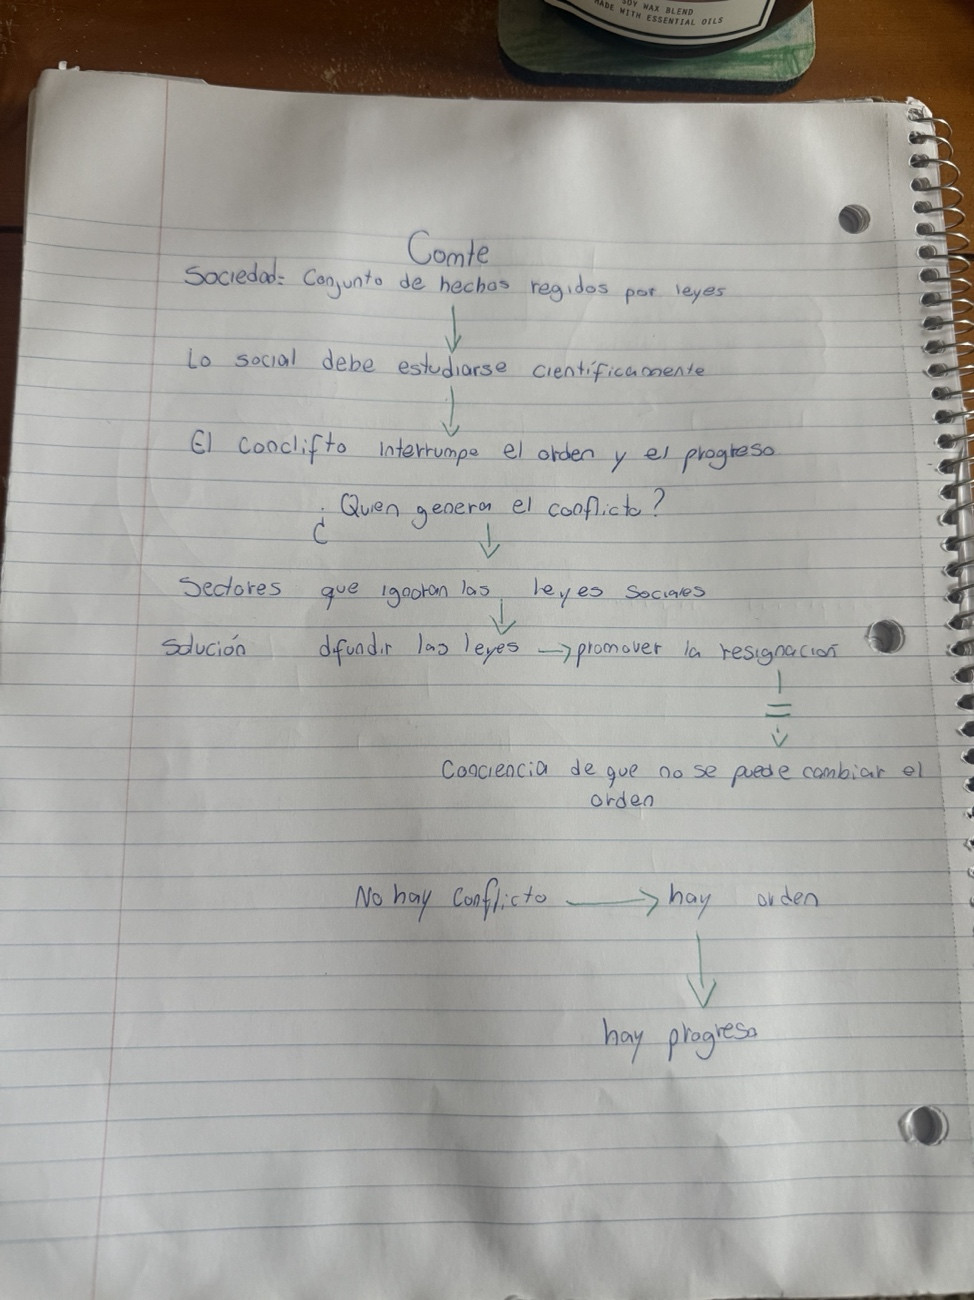 SOY WAX BLEND
MADE WITH ESSENTIAL OILS
Comte
Sociedad= Conjunto de hechos regidos por leyes
Lo social debe estudiarse científicamente
El conclifto interrumpe el orden y el progreso
¿Quien genera el conflicto?
Sectores que ignoran las leyes sociales
Solución difundir las leyes → promover la resignación
=
Conciencia de que no se puede cambiar el
orden
No hay conflicto → hay orden
hay progreso